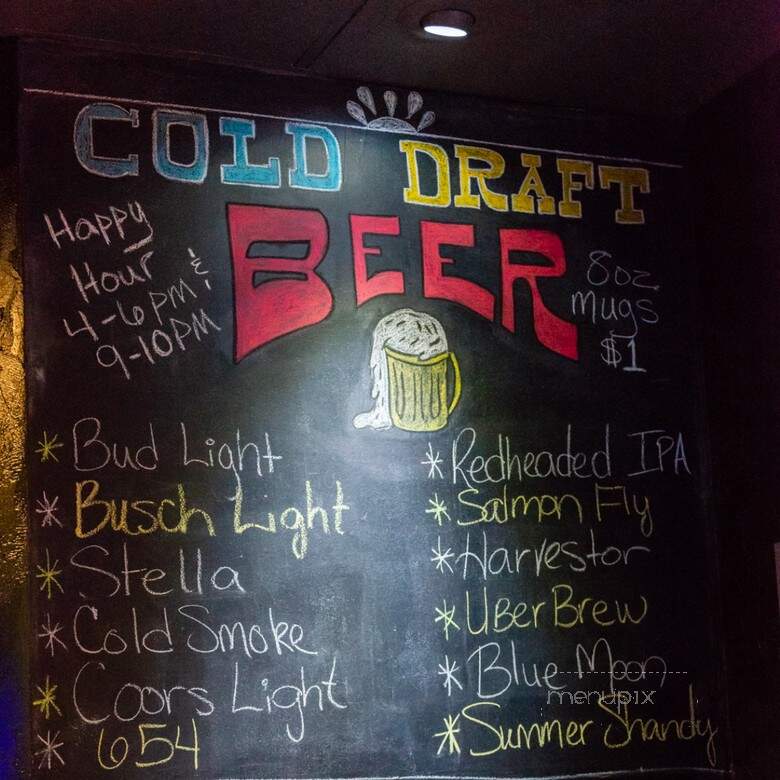 COLD DRAFT
BEER
Happy
Hour
4-6pm &
9-10pm
8oz
mugs
$1
* Bud Light
* Busch Light
* Stella
* Cold Smoke
* Coors Light
* 654
* Redheaded IPA
* Salmon Fly
* Harvestor
* Uber Brew
* Blue Moon
* Summer Shandy
menupix